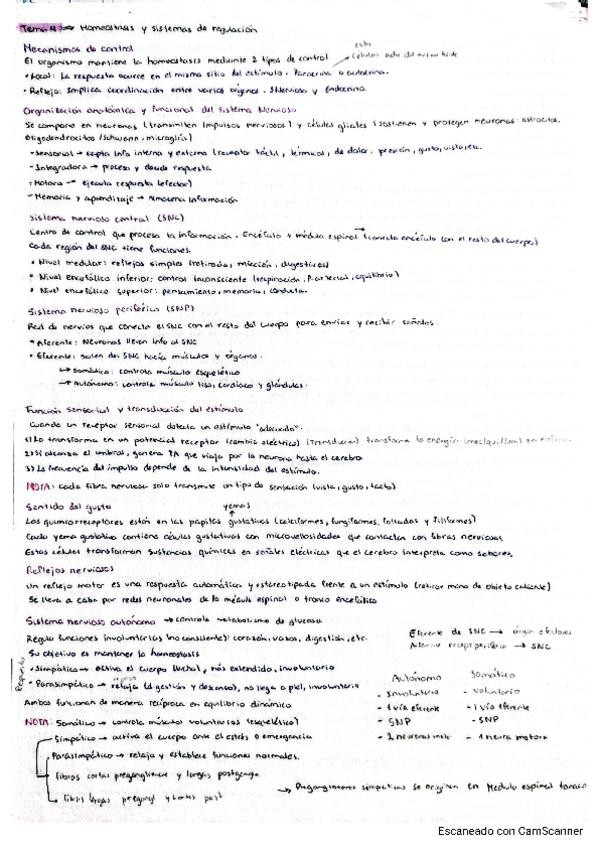 Tema 4 → Homeostasis y sistemas de regulación
Mecanismos de control
El organismo mantiene la homeostasis mediante 2 tipos de control
• Local: La respuesta ocurre en el mismo sitio del estímulo. Paracrina o autocrina.
• Refleja: Implica coordinación entre varios órganos. S.Nervioso y Endocrino.
Organización anatómica y funcional del Sistema Nervioso
Se compone en neuronas (transmiten impulsos nerviosos) y células gliales (sostienen y protegen neuronas: astrocitos,
Oligodendrocitos/Schwann, microglía)
• Sensorial → capta info interna y externa (receptor táctil, térmicos, de dolor, presión, gusto, vista, etc.
• Integradora → procesa y decide respuesta
• Motora → ejecuta respuesta (efector)
• Memoria y aprendizaje → almacena información
Sistema nervioso central (SNC)
Centro de control que procesa la información. Encéfalo y médula espinal (conecta encéfalo con el resto del cuerpo)
Cada región del SNC tiene funciones.
• Nivel medular: reflejos simples (retirada, micción, digestivos)
• Nivel encefálico inferior: control inconsciente (respiración, P.arterial, equilibrio)
• Nivel encefálico superior: pensamiento, memoria, conducta.
Sistema nervioso periférico (SNP)
Red de nervios que conecta el SNC con el resto del cuerpo para enviar y recibir señales.
• Aferente: Neuronas llevan info al SNC
• Eferente: salen del SNC hacia músculos y órganos.
↪ Somático: controla músculo esquelético
↪ Autónomo: controla músculo liso, cardíaco y glándulas.
Función sensorial y transducción del estímulo
Cuando un receptor sensorial detecta un estímulo "adecuado".
1) Lo transforma en un potencial receptor (cambio eléctrico) (transducen) transforma la energía
2) Si alcanza el umbral, genera PA que viaja por la neurona hasta el cerebro
3) La frecuencia del impulso depende de la intensidad del estímulo.
NOTA: Cada fibra nerviosa solo transmite un tipo de sensación (vista, gusto, tacto)
Sentido del gusto
yemas
Los quimiorreceptores están en las papilas gustativas (caliciformes, fungiformes, foliadas y filiformes)
Cada yema gustativa contiene células gustativas con microvellosidades que contactan con fibras nerviosas.
Estas células transforman sustancias químicas en señales eléctricas que el cerebro interpreta como sabores.
Reflejos nerviosos
Un reflejo motor es una respuesta automática y estereotipada frente a un estímulo (retirar mano de objeto caliente)
Se lleva a cabo por redes neuronales de la médula espinal o tronco encefálico
Sistema nervioso autónomo → controla metabolismo de glucosa
Regula funciones involuntarias (no consciente): corazón, vasos, digestión, etc.
Su objetivo es mantener la homeostasis
• Simpático → activa el cuerpo (lucha), más extendido, involuntario
• Parasimpático → relaja (digestión y descanso), no llega a piel, involuntario
Ambos funcionan de manera recíproca en equilibrio dinámico
Eferente de SNC → órgano efectores
SNC
Autónomo Somático
- Involuntario - voluntario
- 1 vía eferente - 1 vía eferente
- SNP - SNP
- 2 neuronas - 1 neurona motora
NOTA: Somático → controla músculos voluntarios (esquelético)
Simpático → activa el cuerpo ante el estrés o emergencia
Parasimpático → relaja y establece funciones normales.
Fibras cortas preganglionar y largas postgangl
Fibras largas pregangl y cortas post
→ Preganglionares simpáticas se originan en Médula espinal
Escaneado con CamScanner